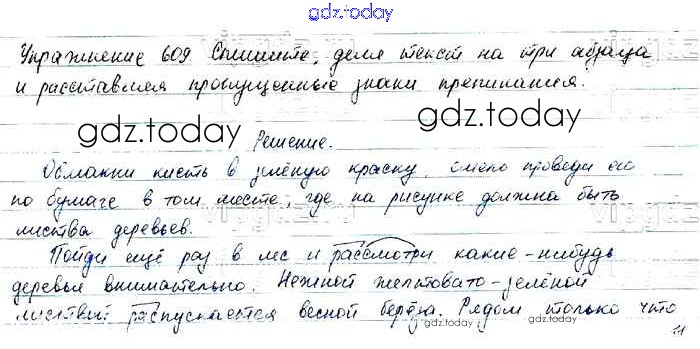 gdz.today
Упражнение 609 Спишите, деля текст на три абзаца
и расставляя пропущенные знаки препинания.
gdz.today gdz.today
Решение.
Обмакни кисть в зелёную краску, смело проведи ею
по бумаге в том месте, где на рисунке должна быть
листва деревьев.
Пойди ещё раз в лес и рассмотри какие-нибудь
деревья внимательно. Нежной желтовато-зелёной
листвой распускается весной берёза. Рядом только что
gdz.today gdz.today